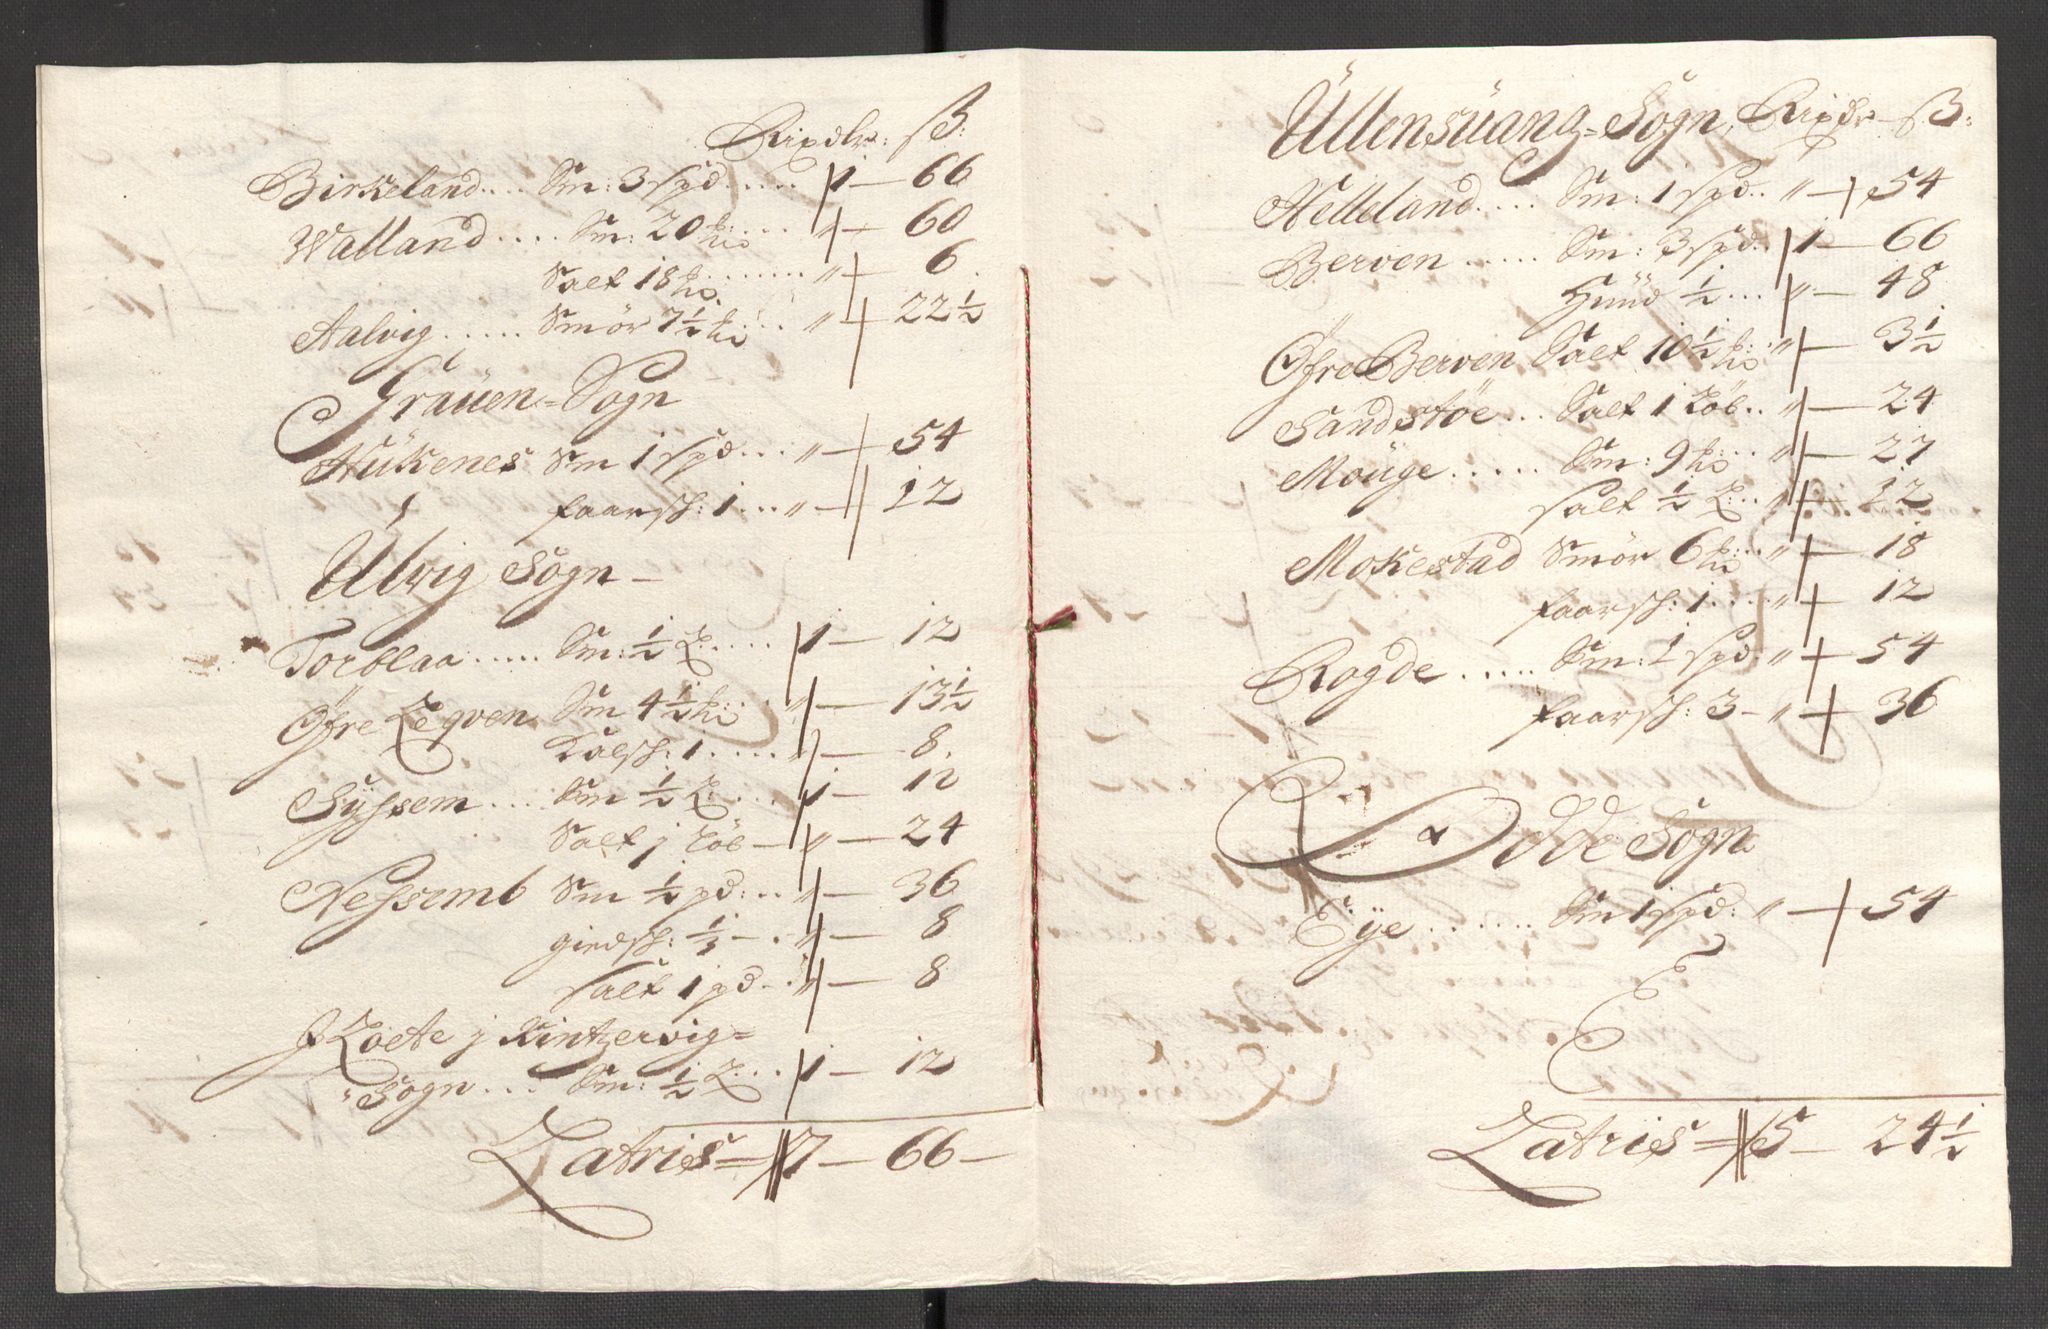 Rixdlr: ß:
Birkeland.... Sm: 3 spd..... 1 — 66
Walland.... Sm: 20 ... " — 60
Salt 18 ....... " — 6.
Aalvig..... Smör 7½ ... " — 22½
Grauen=Sogn
Nükenes Sm 1 spd... " — 54
faarsk: 1... " — 12
Ulvig Sogn —
Torblaa..... Sm: ½ L..... 1 — 12
Øfre Leqven Sm 4½ ... " — 13½
Kalfsk: 1..... " — 8.
Syssem.... Sm ½ L.... 1 — 12
Salt j Løb — " — 24
Nessemb Sm ½ pd:.. " — 36
giedsk: ⅓ — . " — 8
salt 1 pd... " — 8
Loete j Kintzervig=
Sogn.... Sm: ½ L... 1 — 12
Latris = 7 — 66 —
Üllensüang=Sogn, Rixdr — ß:
Helleland..... Sm: 1 spd.. " — 54
Berven...... Sm: 3 spd.. 1 — 66
Huud ½... " — 48
Øfre Berven Salt 10½ ... " — 3½
Sandstøe... Salt 1 Løb.. " — 24
Moüge..... Sm: 9 ... " — 27
salt ½ L... " — 12
Mokestad Smör 6 ... " — 18
faarsk: 1.... " — 12
Rogde..... Sm: 1 spd: " — 54
faarsk: 3 — " — 36
Odde Sogn
Eye....... Sm 1 spd: " — 54
Latris = 5 — 24½